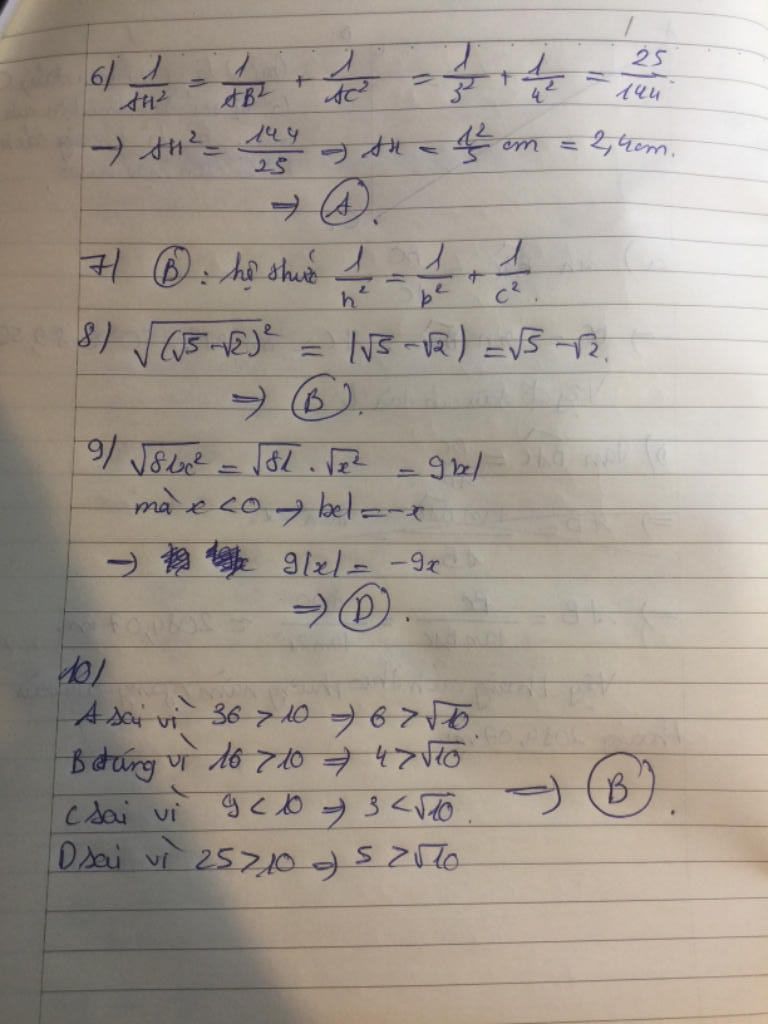 6) 1/AH² = 1/AB² + 1/AC² = 1/3² + 1/4² = 25/144.
→ AH² = 144/25 ⇒ AH = 12/5 cm = 2,4cm.
⇒ A.
7) B : hệ thức 1/h² = 1/b² + 1/c².
8) √(√5-√2)² = |√5-√2| = √5-√2.
⇒ B.
9) √81x² = √81 . √x² = 9|x|
mà x < 0 → |x| = -x
→ 9|x| = -9x
⇒ D.
10)
A sai vì 36 > 10 ⇒ 6 > √10.
B đúng vì 16 > 10 ⇒ 4 > √10
C sai vì 9 < 10 ⇒ 3 < √10. ⇒ B.
D sai vì 25 > 10 ⇒ 5 > √10